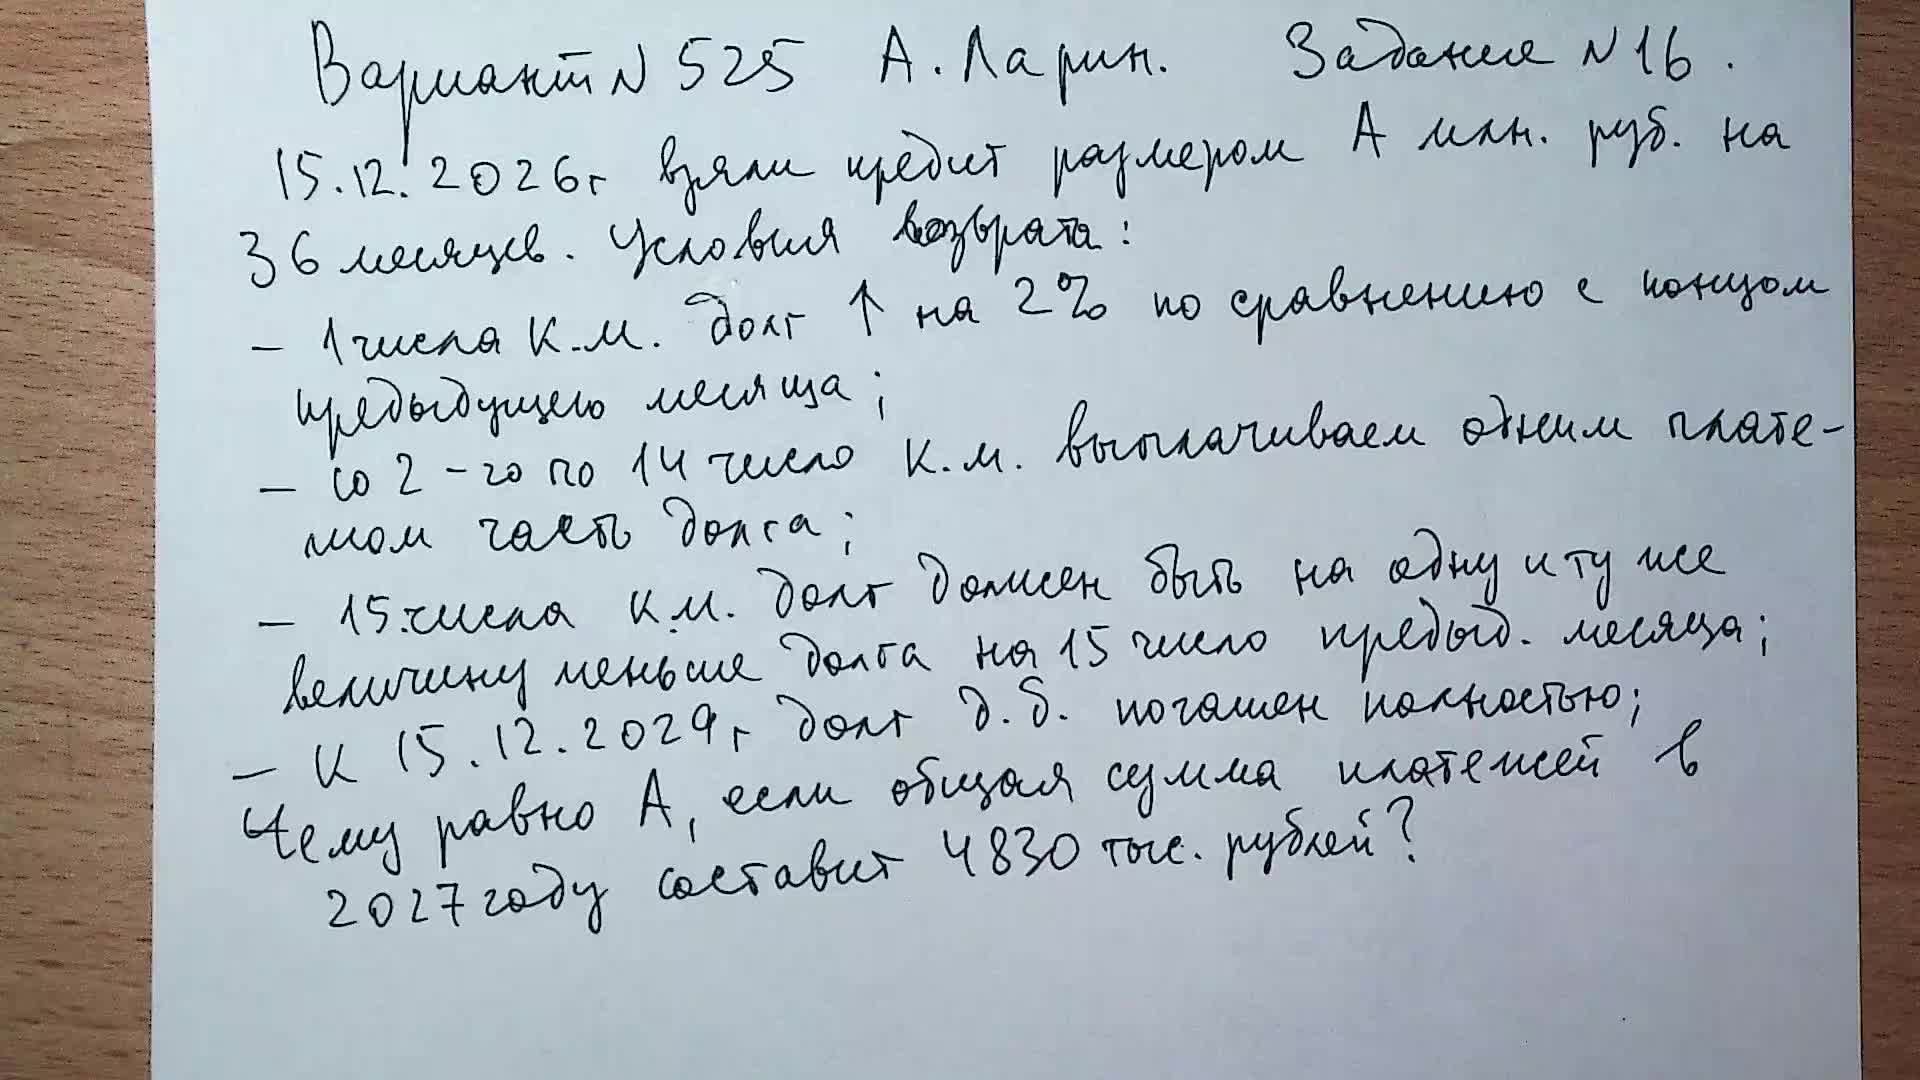 Вариант N 525 А. Ларин. Задание N 16.
15.12.2026г взяли кредит размером А млн. руб. на
36 месяцев. Условия возврата:
– 1 числа к.м. долг ↑ на 2% по сравнению с концом
предыдущего месяца;
– со 2-го по 14 число к.м. выплачиваем одним плате-
жом часть долга;
– 15 числа к.м. долг должен быть на одну и ту же
величину меньше долга на 15 число предыд. месяца;
– К 15.12.2029г долг д.б. погашен полностью;
Чему равно А, если общая сумма платежей в
2027 году составит 4830 тыс. рублей?